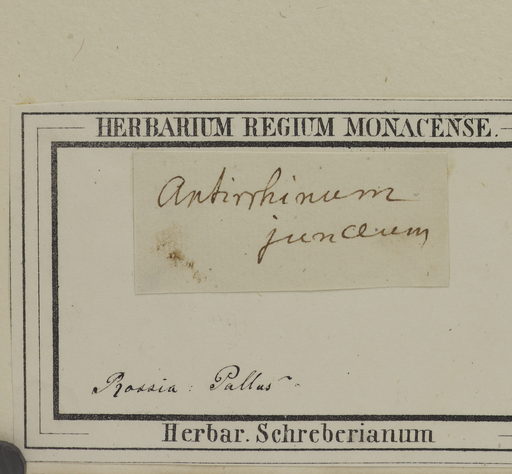 HERBARIUM REGIUM MONACENSE.
Antirrhinum
junceum
Rossia: Pallas
Herbar. Schreberianum